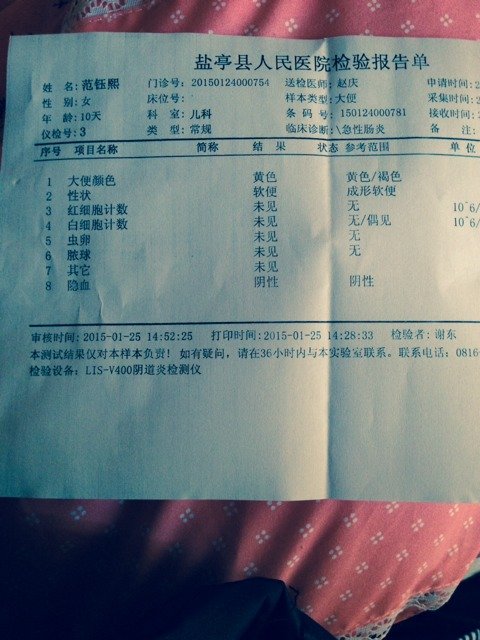 盐亭县人民医院检验报告单
姓 名:范钰熙 门诊号:20150124000754 送检医师:赵庆 申请时间:2
性 别:女 床位号: 样本类型:大便 采集时间:2
年 龄:10天 科 室:儿科 条 码 号:150124000781 接收时间:2
仪检号:3 类 型:常规 临床诊断:\急性肠炎 备 注:
序号 项目名称 简称 结 果 状态 参考范围 单 位
1 大便颜色 黄色 黄色/褐色
2 性状 软便 成形软便
3 红细胞计数 未见 无 10^6/
4 白细胞计数 未见 无/偶见 10^6/
5 虫卵 未见 无
6 脓球 未见 无
7 其它 未见
8 隐血 阴性 阴性
审核时间:2015-01-25 14:52:25 打印时间:2015-01-25 14:28:33 检验者:谢东
本测试结果仅对本样本负责! 如有疑问,请在36小时内与本实验室联系。联系电话:0816-
检验设备:LIS-V400阴道炎检测仪